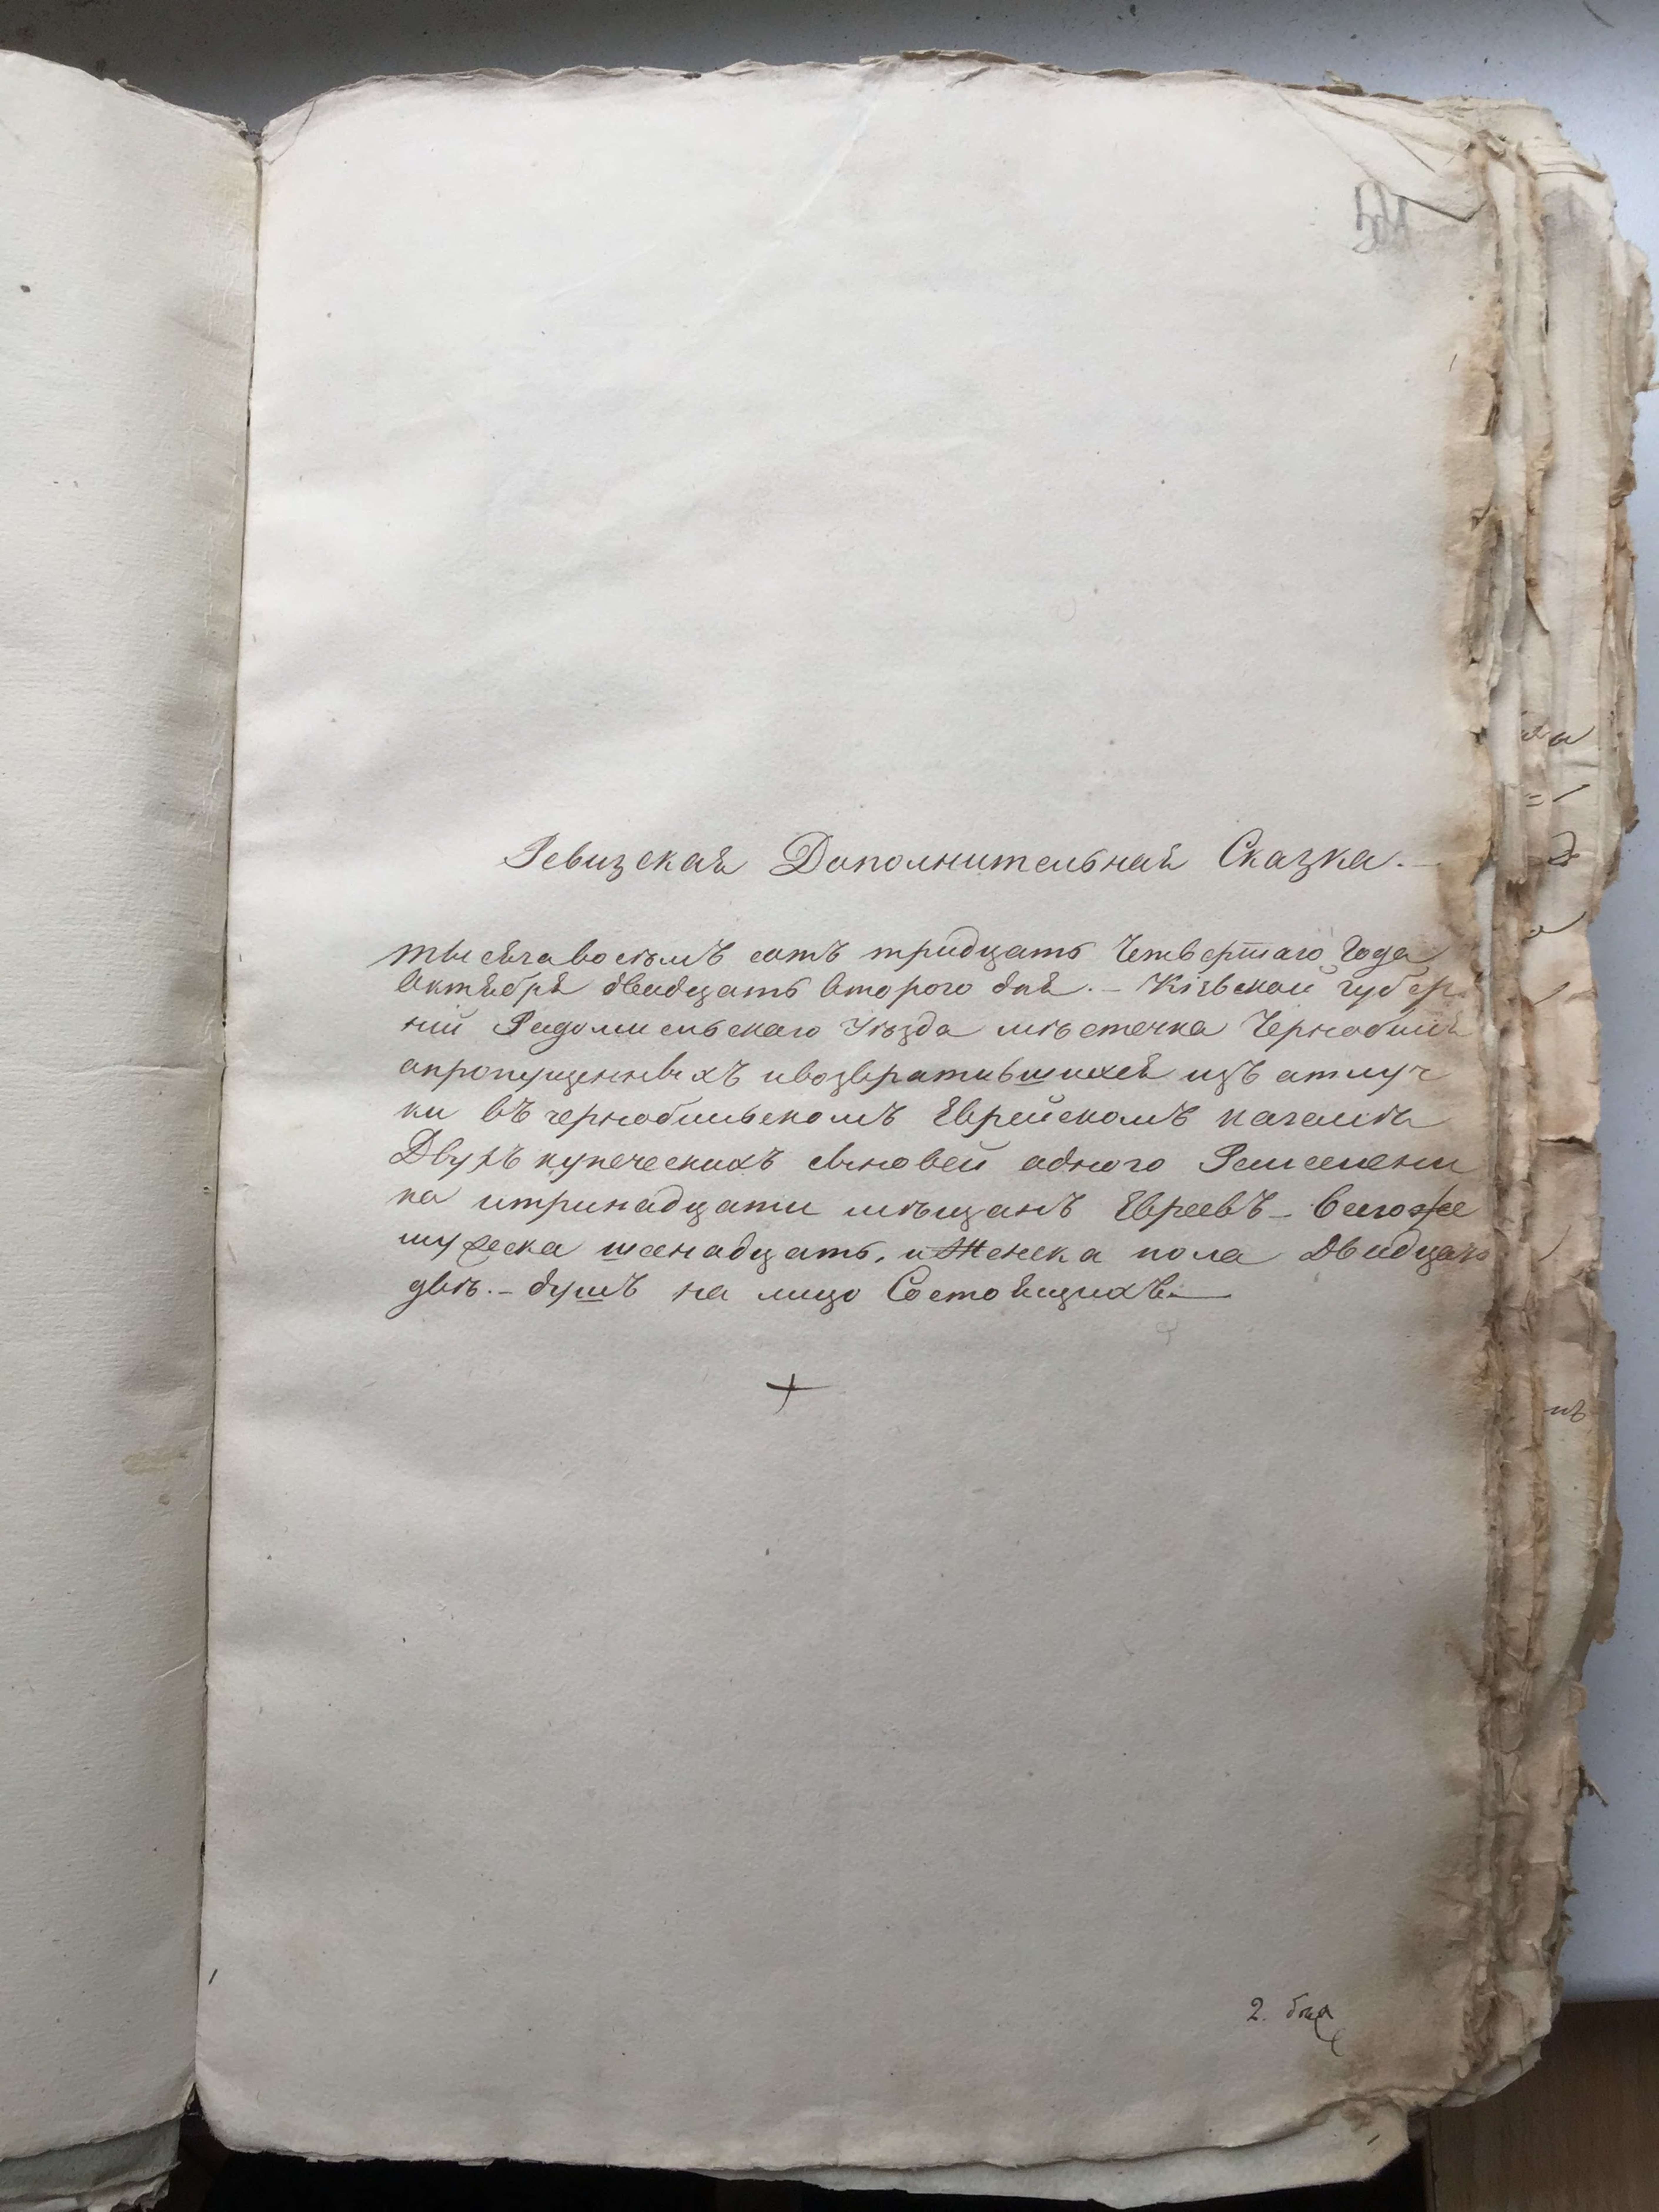 Ревизская Дополнительная Сказка.—
тысячавосѣмъ сотъ тридцать Четвертаго Года
Октября двадцать Второго дня.— Кіевской губер
ніи Радомисльскаго Уѣзда мѣстечка Чернобиля
опропущенныхъ ивозвратившихся изъ отлуч
ки въ чернобильскомъ Еврейскомъ кагалѣ
Двухъ купеческихъ сыновей одного Ремеслени
ка итринадцати мѣщанъ Евреевъ — Сегоже
мужеска шеснадцать, и Женска пола Двадцать
двѣ.— душъ на лицо Состоящихъ.—
2.